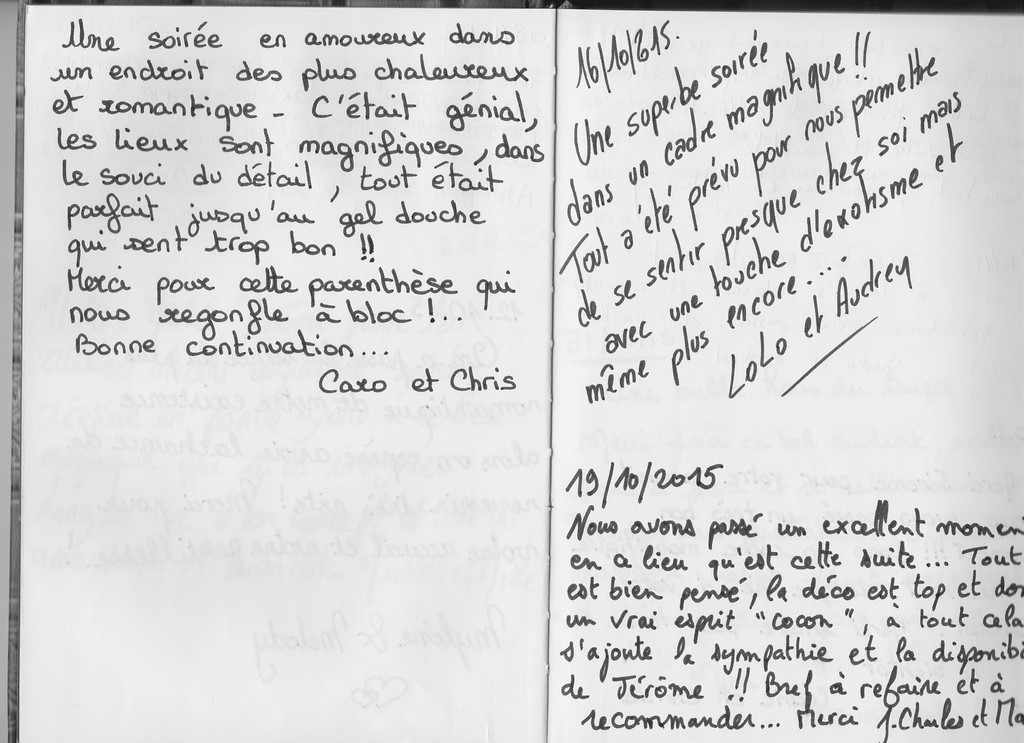 Une soirée en amoureux dans
un endroit des plus chaleureux
et romantique - C'était génial,
les lieux sont magnifiques, dans
le souci du détail tout était
parfait jusqu'au gel douche
qui sent trop bon !!
Merci pour cette parenthèse qui
nous regonfle à bloc !..
Bonne continuation...
Caro et Chris
16/10/215.
Une superbe soirée
dans un cadre magnifique !!
Tout a été prévu pour nous permettre
de se sentir presque chez soi mais
avec une touche d'exotisme et
même plus encore...
LoLo et Audrey
19/10/2015
Nous avons passé un excellent momen
en a lieu qu'est cette suite... Tout
est bien pensé, la déco est top et do
un vrai esprit "cocon", à tout cela
s'ajoute la sympathie et la disponibi
de Jérôme !! Bref à refaire et à
recommander... Merci J.Charles et Ma